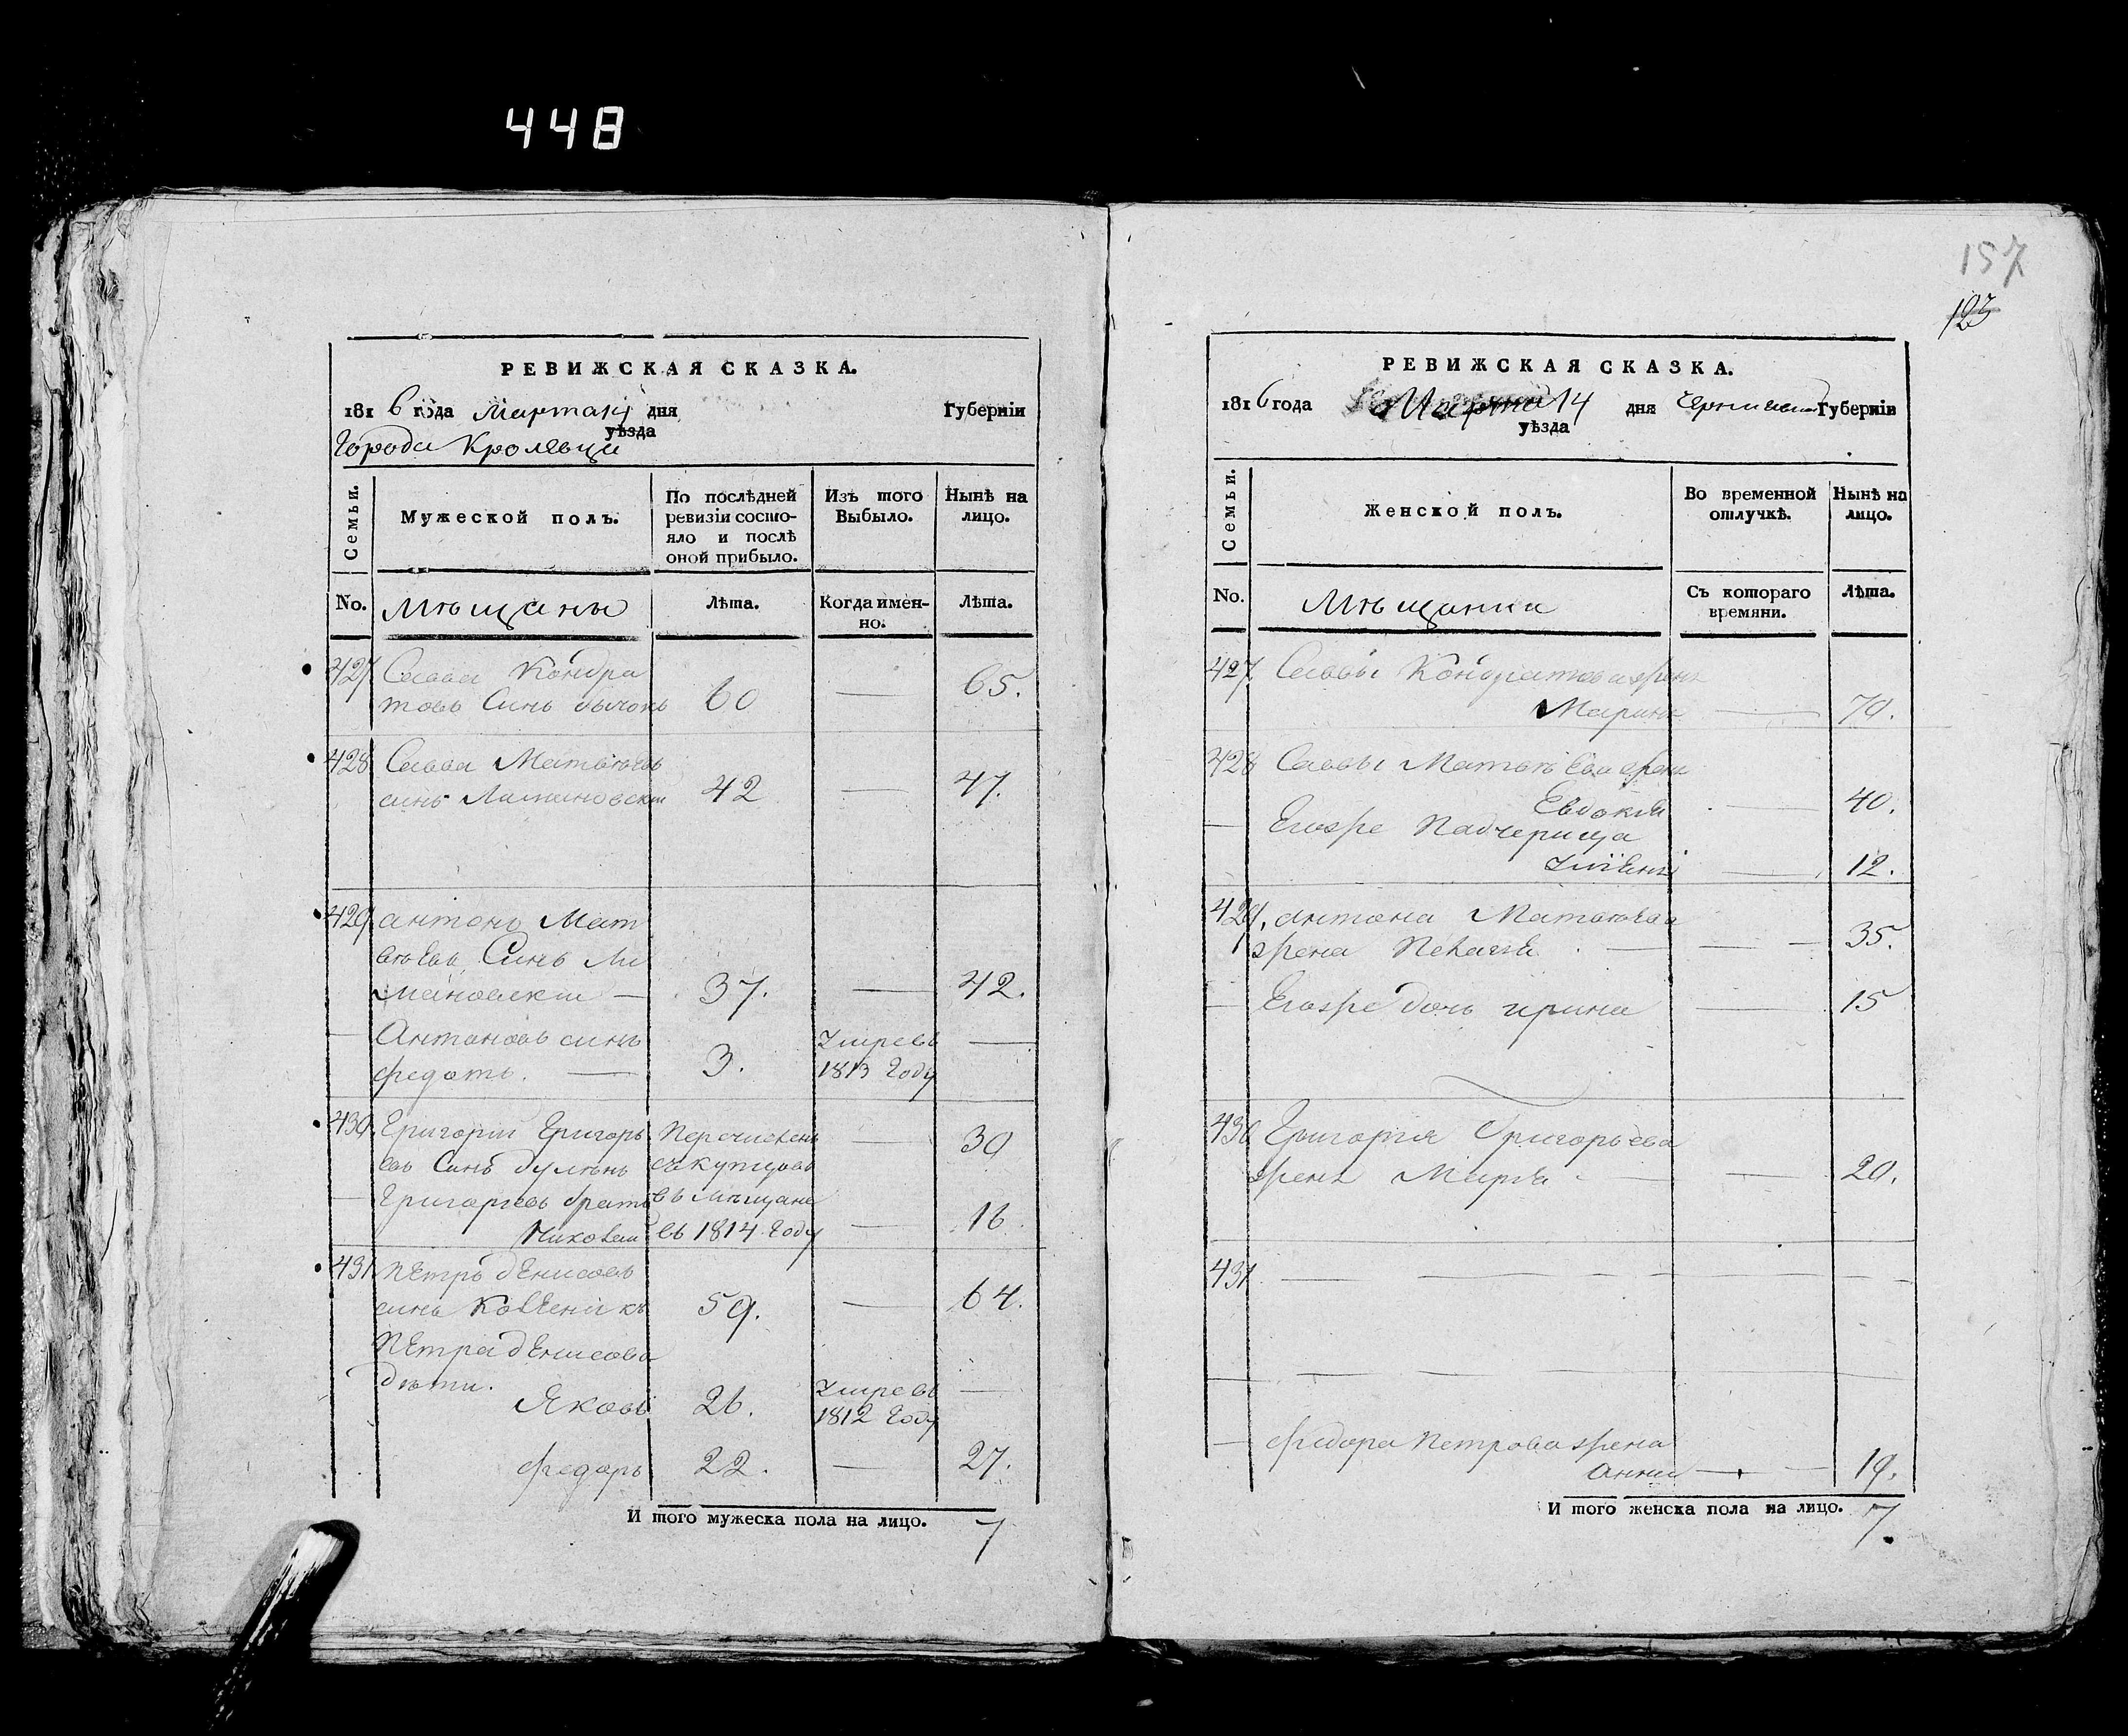 448
157
123
РЕВИЖСКАЯ СКАЗКА.
1816 года Марта дня Губерніи
уѣзда
Города Кролевца
Семьи.
Мужеской полъ.
По послѣдней ревизіи состо-
яло и послѣ оной прибыло.
Изъ того Выбыло.
Нынѣ на лицо.
No.
Мѣщаны
Лѣта.
Когда имен-
но.
Лѣта.
427 Савва Кондра
товъ Синъ 60 — 65.
428 Савва Матвѣевъ
синъ 42 — 47.
429. антонъ Мат
вѣевъ Синъ Ли
мановскій — 37. — 42.
— Антоновъ синъ Умревъ —
федотъ. — 3. 1813 Году
430. Григорій Григорь Перечисленъ — 30
евъ Синъ съ купцовъ
— Григоріевъ братъ въ мѣщане
Николай въ 1814 Году — 16.
431 Петръ Денисовъ
синъ 59. — 64.
Петра Денисова
дѣти.
Яковъ 26. Умревъ —
1812 Году
федоръ 22. — 27.
И того мужеска пола на лицо. 7
РЕВИЖСКАЯ СКАЗКА.
1816 года Марта 14 дня Губерніи
уѣзда
Семьи.
Женской полъ.
Во временной отлучкѣ.
Нынѣ на лицо.
No.
Мѣщанки
Съ котораго времяни.
Лѣта.
427. Саввы Кондратова жена
Марина — 70.
428 Саввы Матвѣева жена
Евдокія — 40.
— Егожре Падчерица
— 12.
429. антона Матвѣева
жена Пелагея — — 35.
— Егожре дочь ирина — 15
430 Григорія Григорьева
жена Марія — — 20.
431 —
— федора Петрова жена
анна — 19.
И того женска пола на лицо. 7.